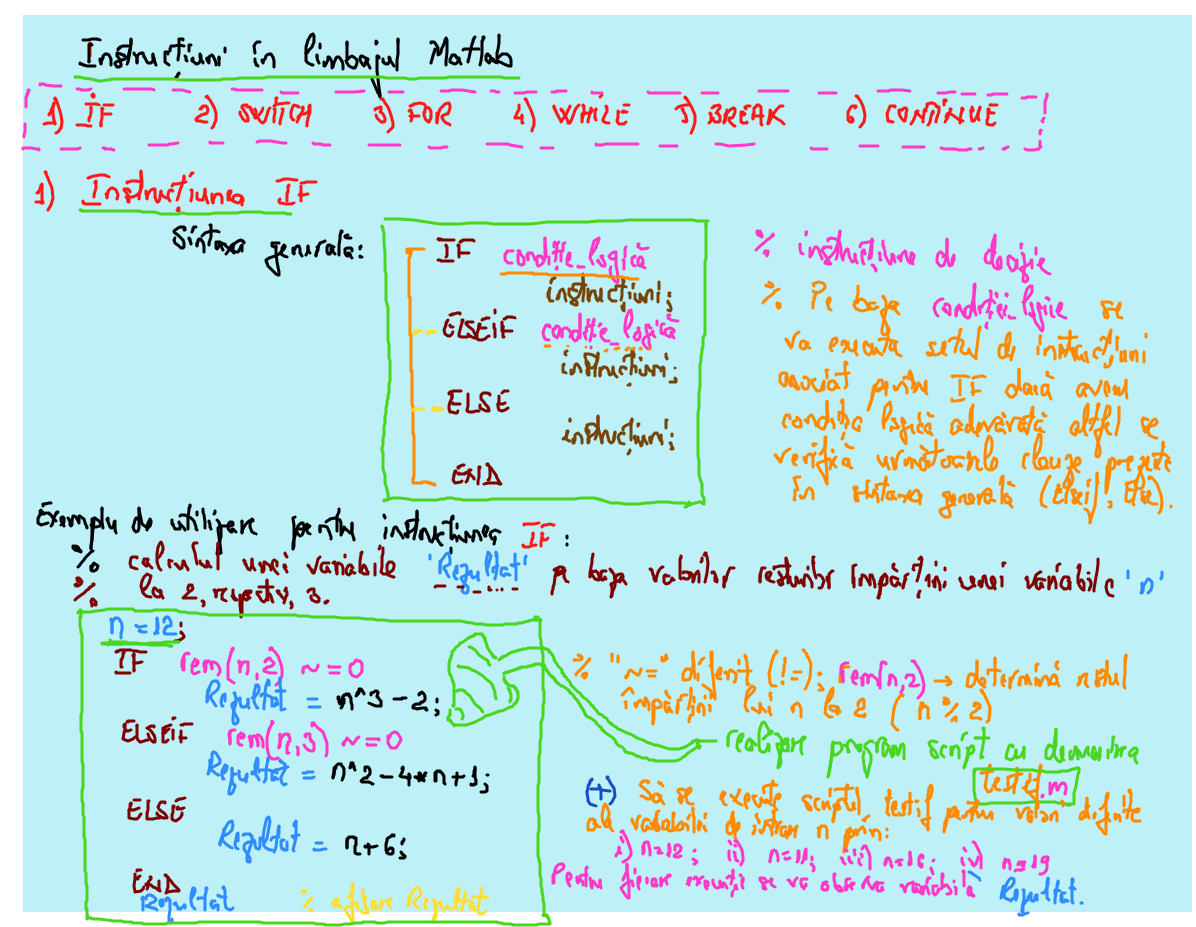 Instrucțiuni în limbajul Matlab
1) IF 2) SWITCH 3) FOR 4) WHILE 5) BREAK 6) CONTINUE
1) Instrucțiunea IF
Sintaxa generală:
IF condiție_logică
instrucțiuni;
ELSEIF condiție_logică
instrucțiuni;
ELSE
instrucțiuni;
END
% instrucțiune de decizie
% Pe baza condiției_logice se
va executa setul de instrucțiuni
asociat pentru IF dacă avem
condiția logică adevărată altfel se
verifică următoarele clauze prezente
în sintaxa generală (Elseif, Else).
Exemplu de utilizare pentru instrucțiunea IF:
% calculul unei variabile 'Rezultat' pe baza valorilor resturilor împărțirii unei variabile 'n'
% la 2, respectiv, 3.
n = 12;
IF rem(n,2) ~= 0
Rezultat = n^3 - 2;
ELSEIF rem(n,3) ~= 0
Rezultat = n^2 - 4*n + 1;
ELSE
Rezultat = n + 6;
END
Rezultat % afișare Rezultat
% "~=" diferit (!=); rem(n,2) → determină restul
împărțirii lui n la 2 (n % 2)
realizare program script cu denumirea
testif.m
(+) Să se execute scriptul testif pentru valori diferite
ale variabilei de intrare n prin:
i) n=12; ii) n=11; iii) n=16; iv) n=19
Pentru fiecare execuție se va observa variabila Rezultat.